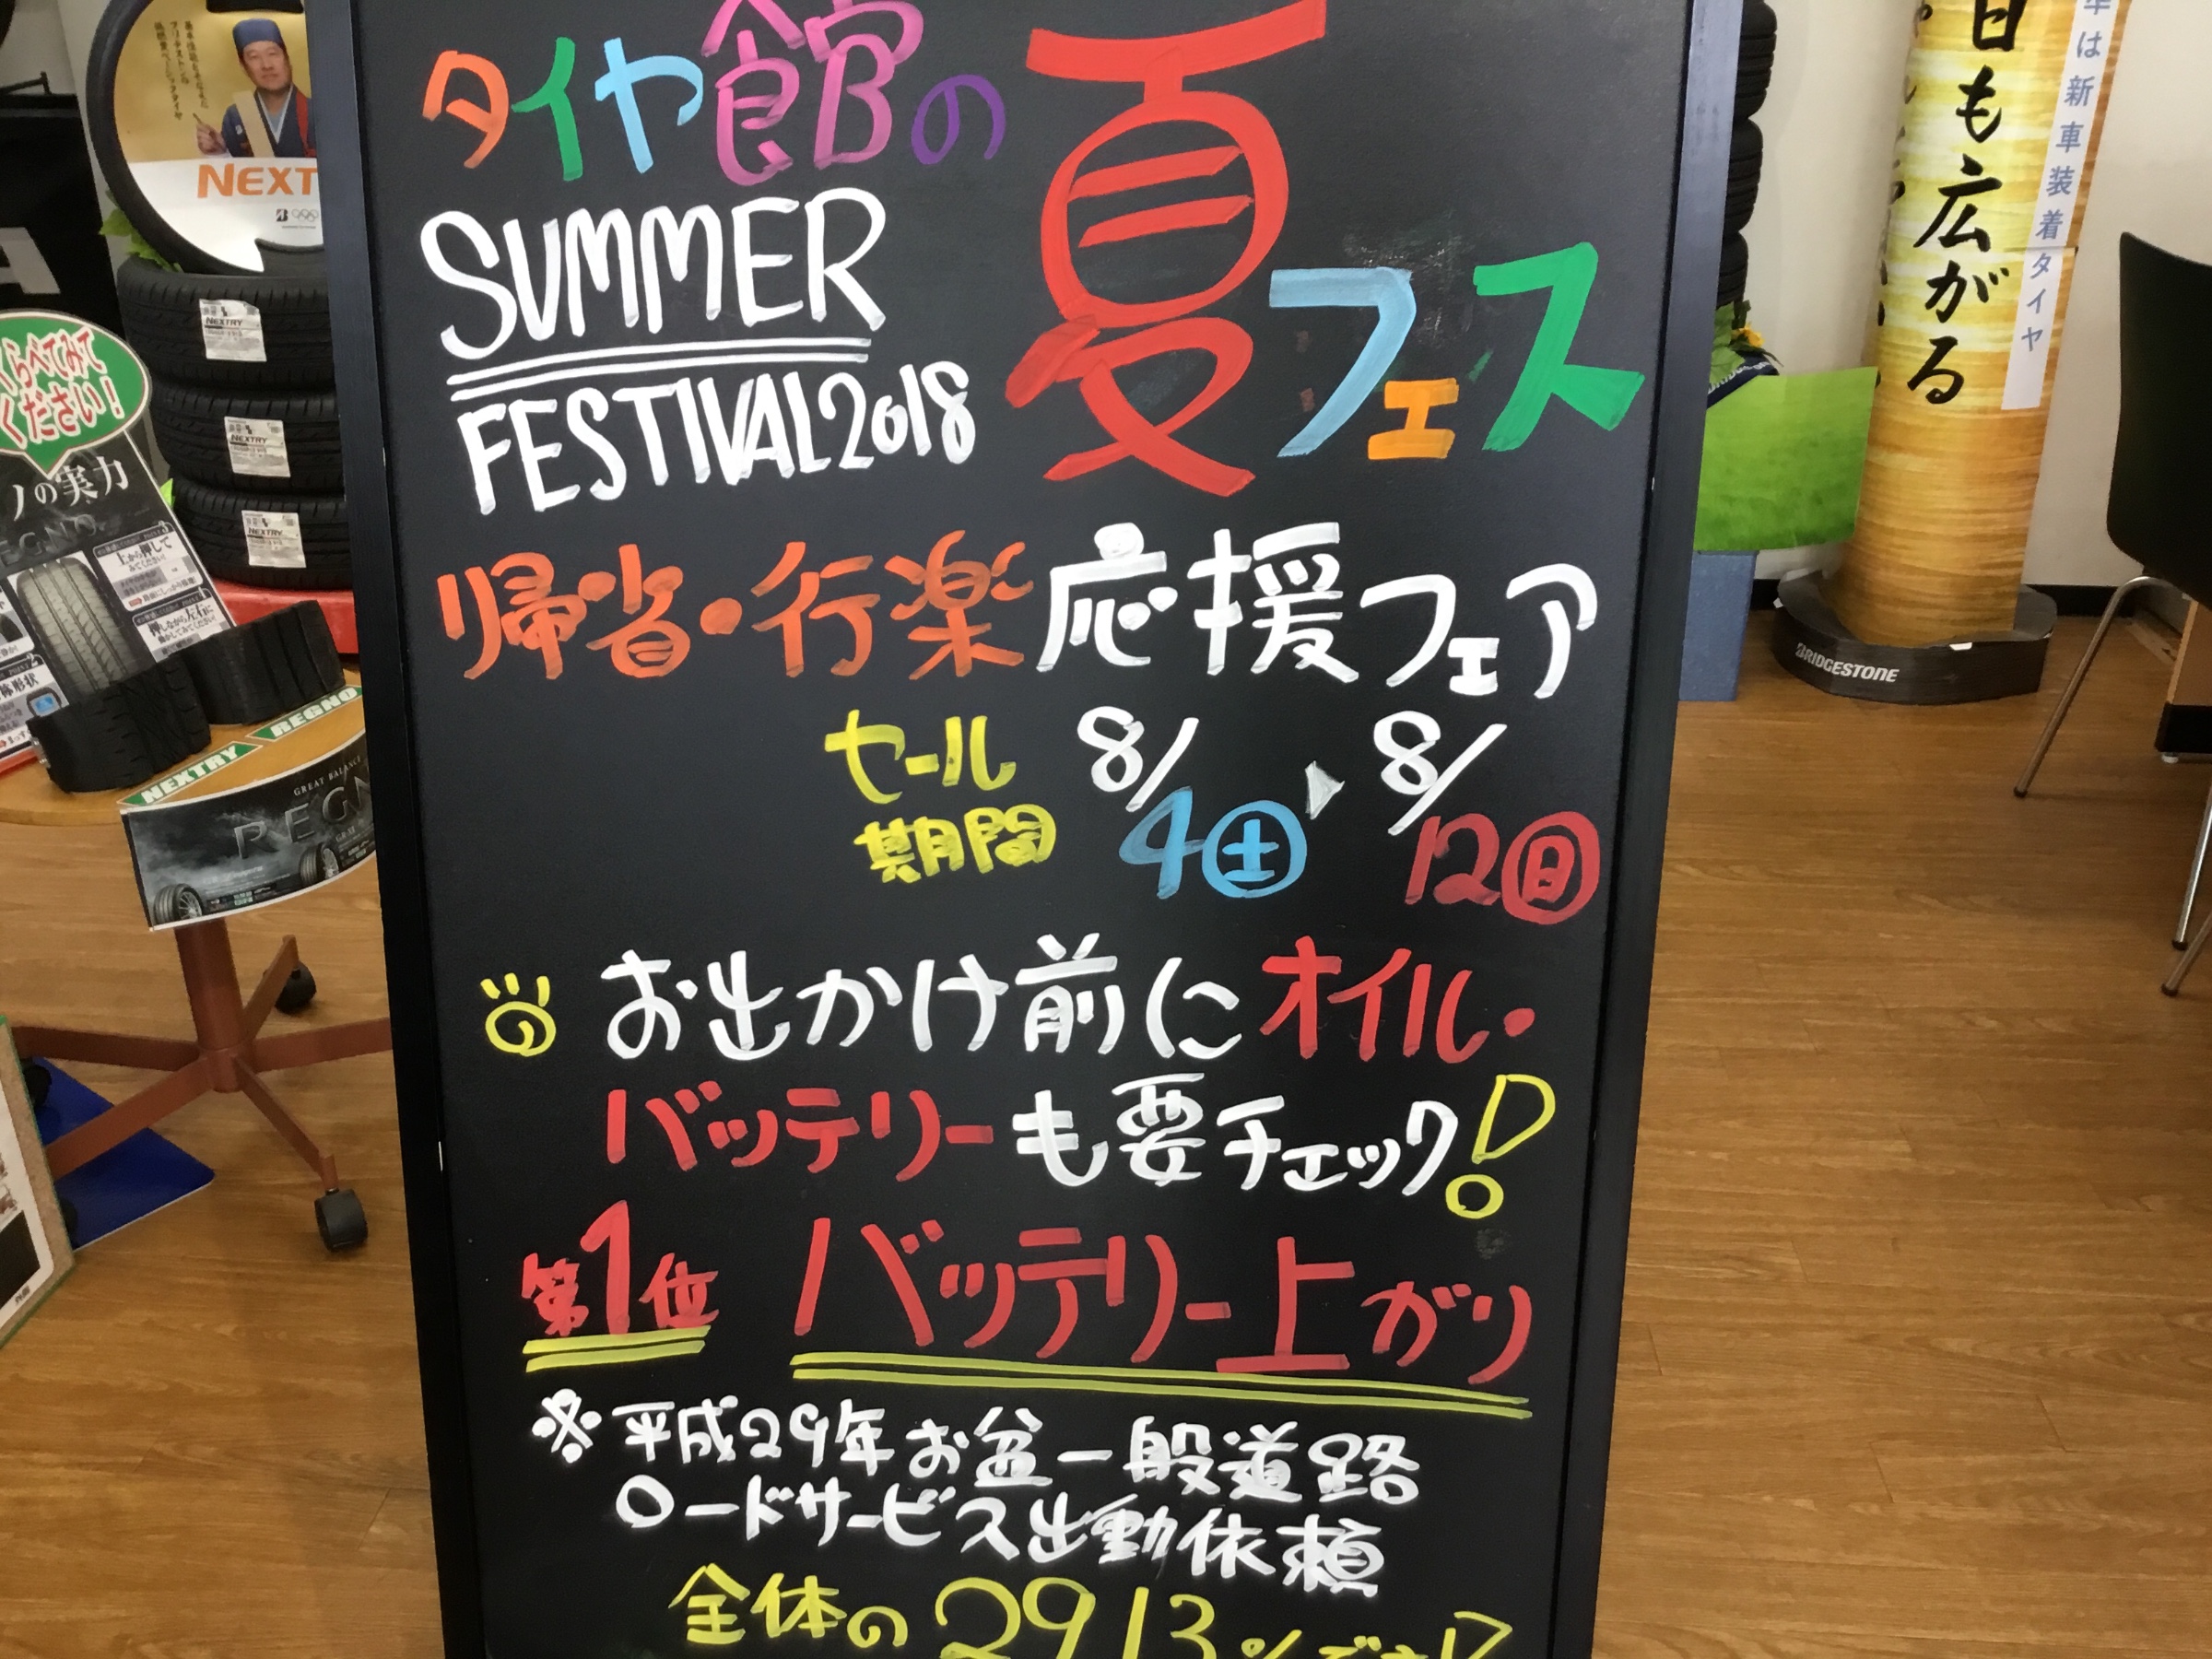 タイヤ館の夏フェス
SUMMER
FESTIVAL2018
帰省・行楽応援フェア
セール期間 8/4土 8/12日
お出かけ前にオイル・
バッテリーも要チェック!
第1位 バッテリー上がり
※平成29年お盆一般道路
ロードサービス出動依頼
全体の
NEXT
NEXTRY
NEXTRY
NEXTRY
くらべてみて
ください!
ノの実力
上から押して
みてください!
押しながら左右に
NEXTRY
REGNO
GREAT BALANCE
日も広がる
は新車装着タイヤ
BRIDGESTONE